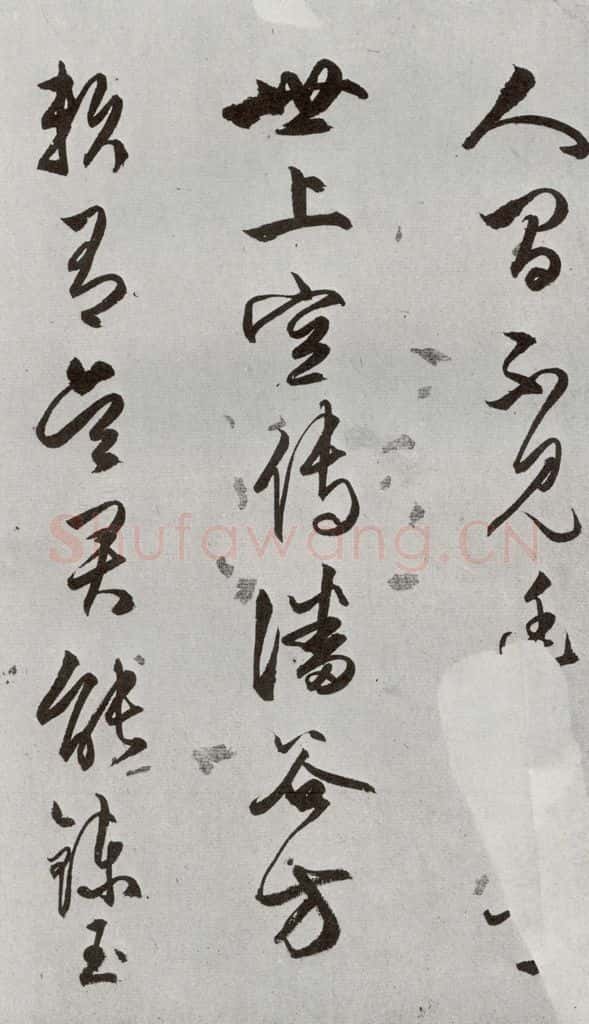 人間不見
世上空傳潘谷方
賴有能鍊玉
Shufawang.CN